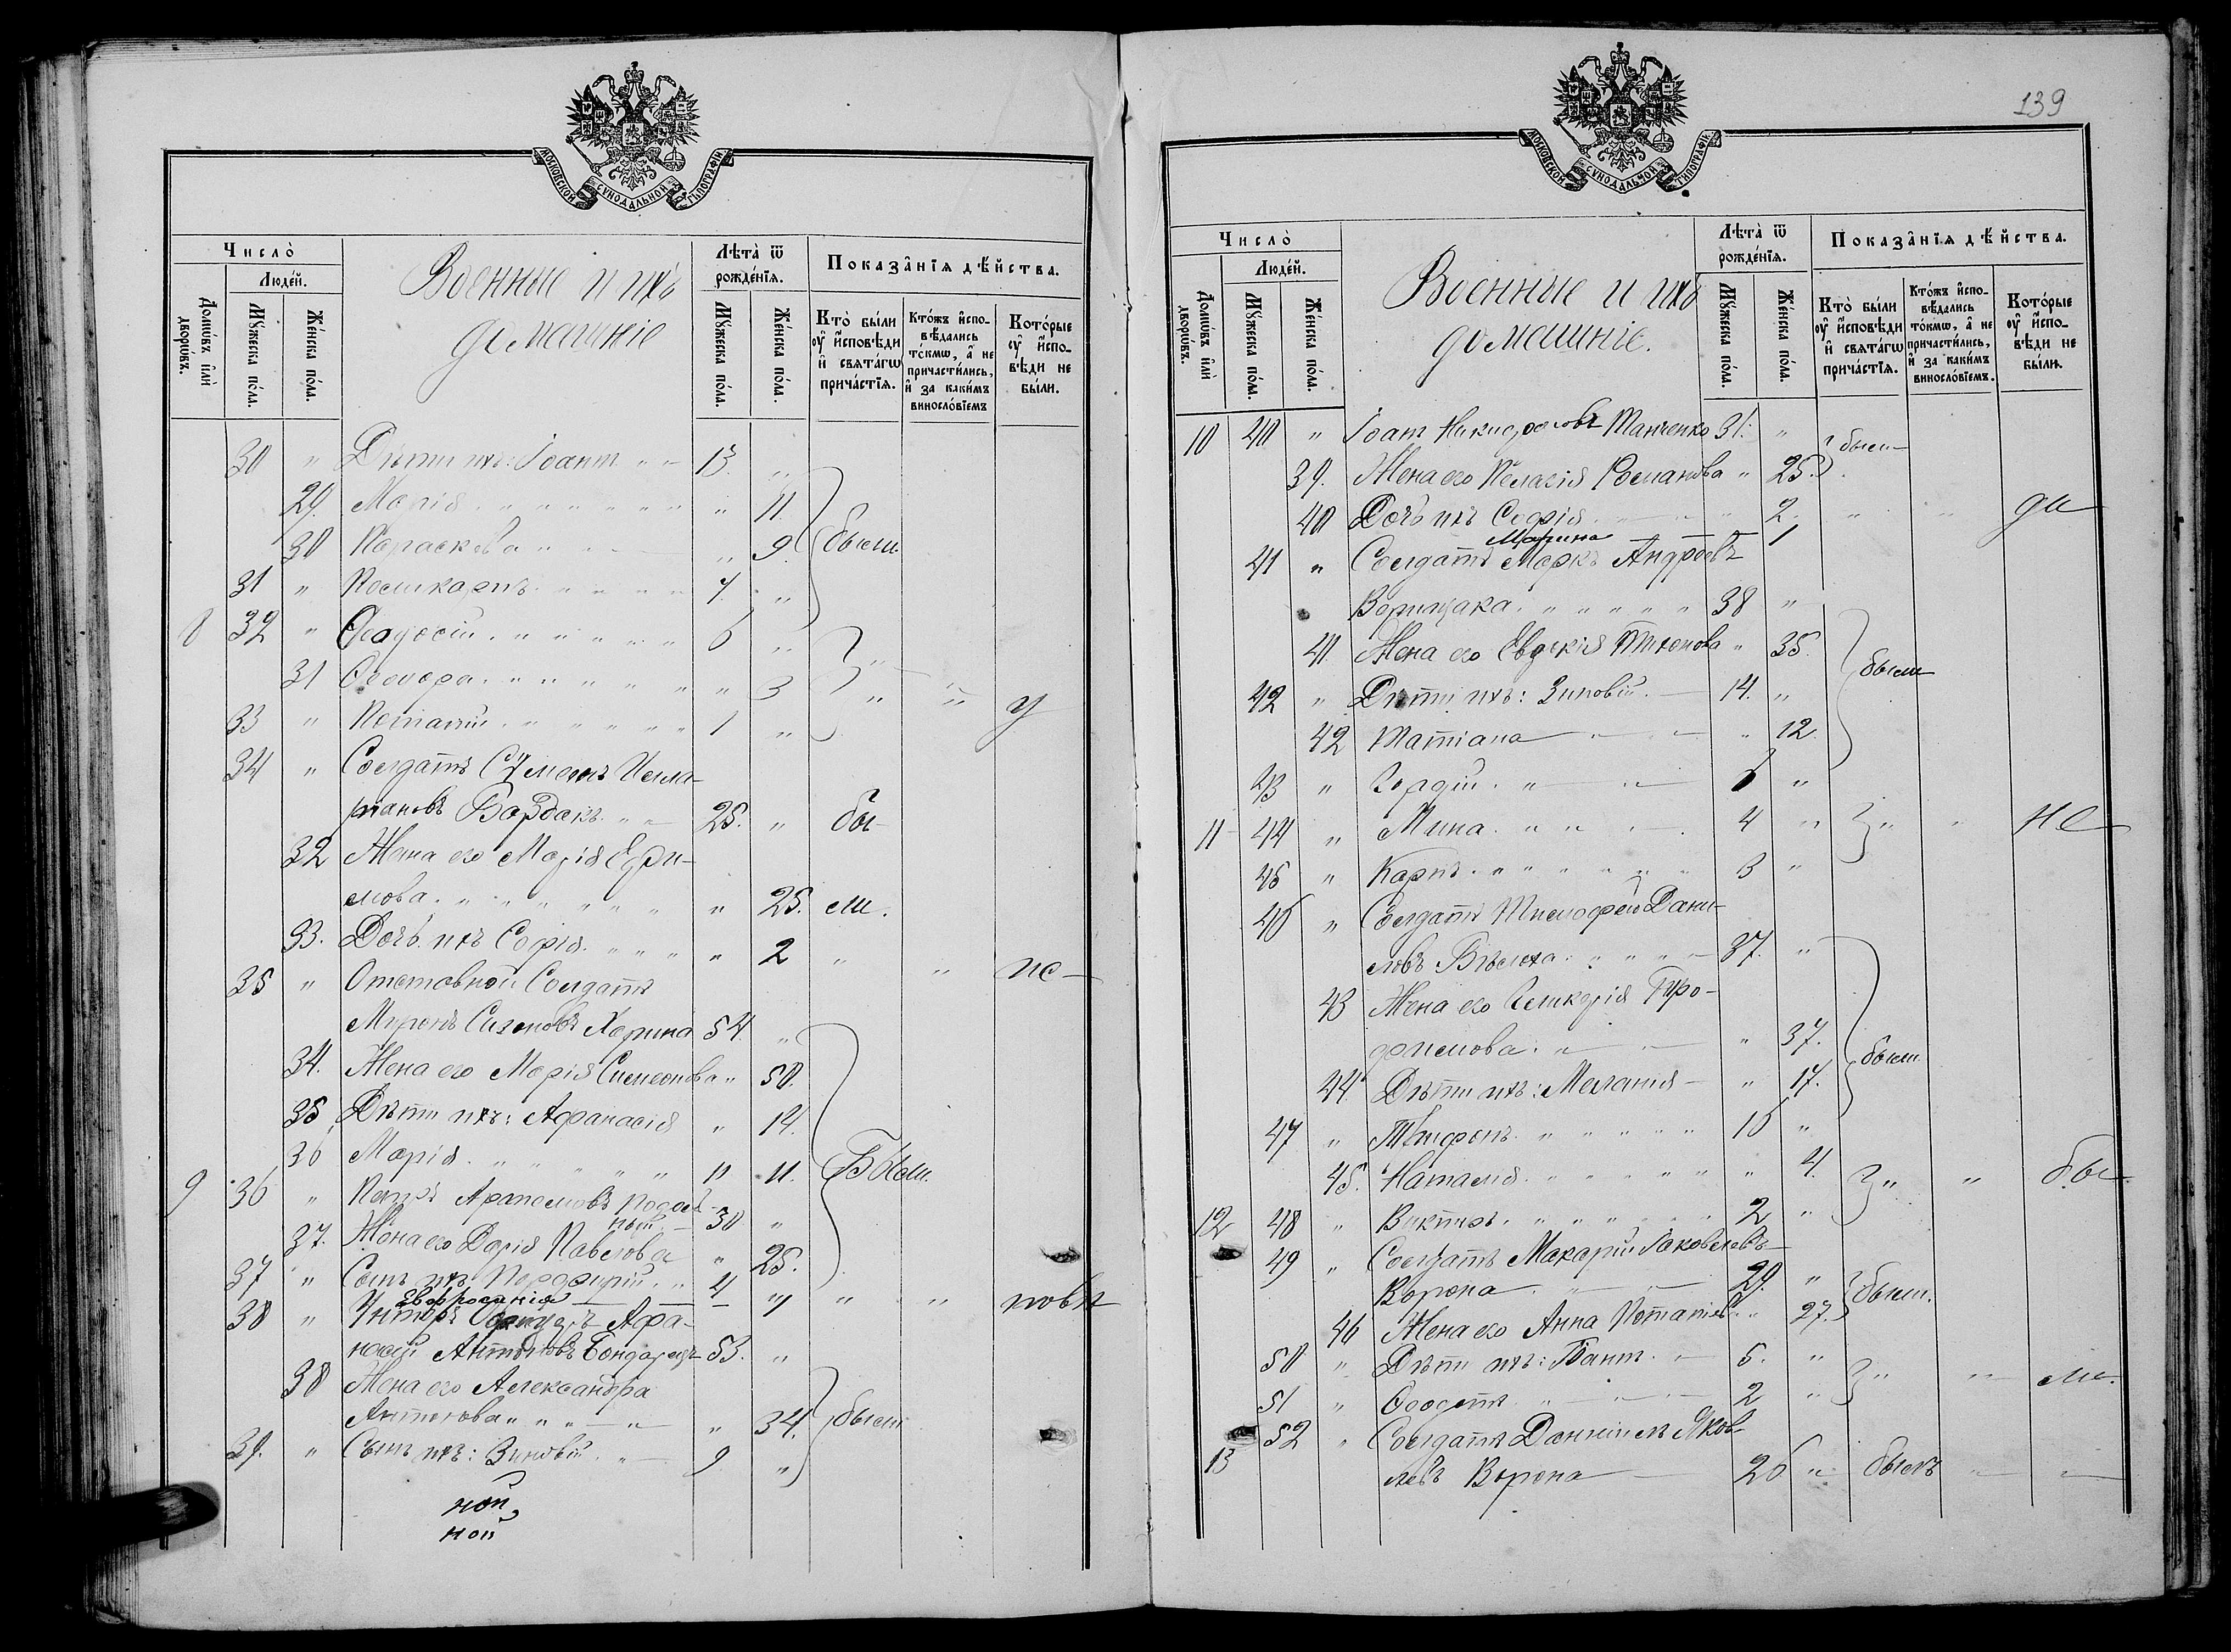 МОСКОВСКОЙ СѴНОДАЛЬНОЙ ТИПОГРАФІИ
Число̀
Людей.
Домѡвъ или дворѡвъ.
Мꙋжеска пола.
Женска пола.
Военные и ихъ
домашніе
Лѣта ѿ рожденїѧ.
Мꙋжеска пола.
Женска пола.
Показанїѧ дѣйства.
Кто были ѹ исповѣди и свѧтагѡ причастїѧ.
Ктожъ исповѣдались токмѡ, а не причастились, и за какимъ винословїемъ
Которые ѹ исповѣди не были.
30 " Дѣти ихъ: Іоаннъ " " 13 "
29. Марія " " " " " " 11.
30 Параскева " " 9. были
31 " Поликарпъ " " " " 7. "
8 32 " Ѳеодосій " " " " " 6 "
31 " " " " " 3 " "
33 " Потапій " " " " " 1 " " " у
34 " Солдатъ Сѵмеонъ
Бардакъ " " 25. " бы-
32 Жена его Марія Ефи-
мова. " " " " " " " 25. ли.
33. Дочь ихъ Софія. " " " " 2 " " ис-
35 " Отставной Солдатъ
Миронъ Сизоновъ Харина 54. "
34. Жена его Марія Симеонова " 50.
35 Дѣти ихъ: Афанасія " 14.
36 Марія. " " " " " " 11. Были.
9 36 " Петръ Артемовъ
30 "
37. Жена его Дарія Павлова " 25.
37 " Сынъ ихъ Порфирій. " 4 " " " повѣ
Евфросинія
38 " Унтеръ Офицеръ Афа-
насій Антоновъ Бондарецъ 53. "
38 Жена его Александра
Антонова " " " " 34. были
39. " Сынъ ихъ: Зиновій. " 9 "
ной
ной
139
МОСКОВСКОЙ СѴНОДАЛЬНОЙ ТИПОГРАФІИ
Число̀
Людей.
Домѡвъ или дворѡвъ.
Мꙋжеска пола.
Женска пола.
Военные и ихъ
домашніе.
Лѣта ѿ рожденїѧ.
Мꙋжеска пола.
Женска пола.
Показанїѧ дѣйства.
Кто были ѹ исповѣди и свѧтагѡ причастїѧ.
Ктожъ исповѣдались токмѡ, а не причастились, и за какимъ винословїемъ.
Которые ѹ исповѣди не были.
10 40 " Іоанъ Никифоровъ Танченко 31. " были
39. Жена его Пелагія Романова " 25.
40 Дочь ихъ Софія. " 2. " " ди
Марина 1
41 " Солдатъ Маркъ Андреевъ
" " " " " 38 "
41. Жена его Евдокія Тихонова " 35. были
42 " Дѣти ихъ: Зиновій. 14. "
42 Татіана " " 12.
43 " Гордій. " " 6 "
11 44 " Мина. " " " 4 " " " не
45 " Карпъ. " " " " " " 3 "
46 " Солдатъ Тимофей Дани-
ловъ Бѣлоха. " " " " 37. "
43 Жена его Гликерія Тро-
фимова. " " 37. были
44. Дѣти ихъ: Меланія " 17.
47 " Трифонъ. " " " " " 10 "
45. Наталія. " " " " " " 4. " " бы-
12 48 " Викторъ. " " " " 2 "
49 " Солдатъ Макарій Іаковлевъ
Ворона " 29. " были.
46 Жена его Анна Потапіева " 27.
50 " Дѣти ихъ: Іоаннъ. " 5. " " " ли.
51 " Ѳеодотъ " " 2 "
52 " Солдатъ Даніилъ Яков-
13 левъ Ворона 26 " былъ " "